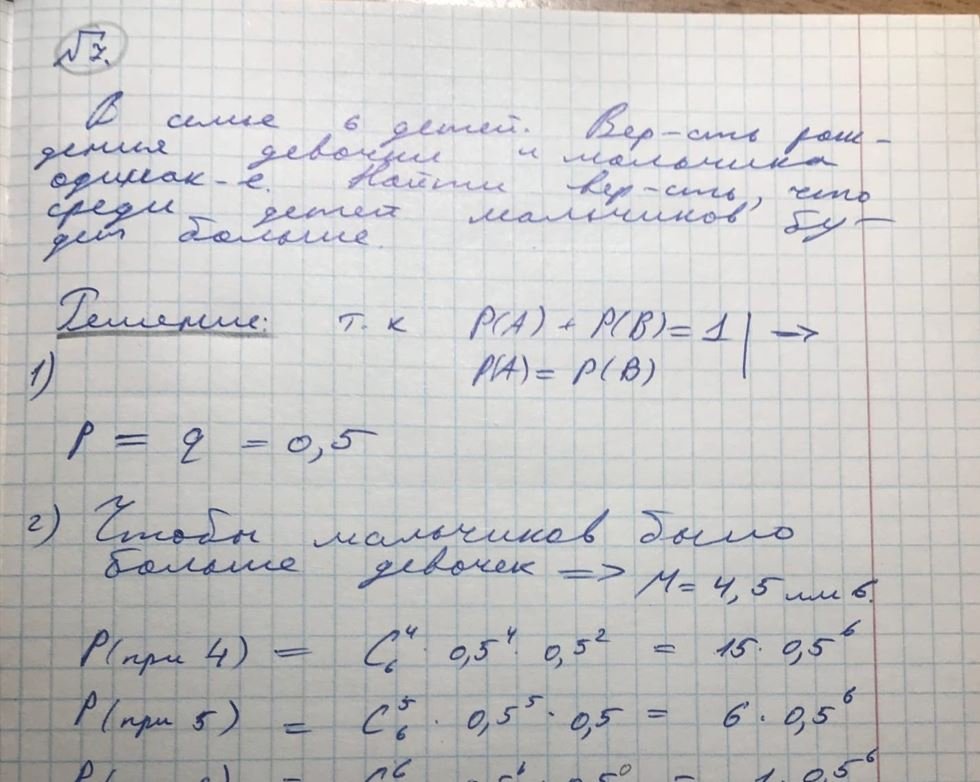 √7.
В семье 6 детей. Вер-сть рож-
дения девочки и мальчика
одинак-е. Найти вер-сть, что
среди детей мальчиков бу-
дет больше.
Решение: т. к P(A) + P(B) = 1 | →
1) P(A) = P(B)
P = q = 0,5
2) Чтобы мальчиков было
больше девочек => M = 4, 5 или 6.
P(при 4) = C₆⁴ · 0,5⁴ · 0,5² = 15 · 0,5⁶
P(при 5) = C₆⁵ · 0,5⁵ · 0,5 = 6 · 0,5⁶